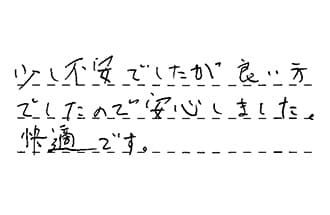 少し不安でしたが良い方
でしたので安心しました。
快適です。